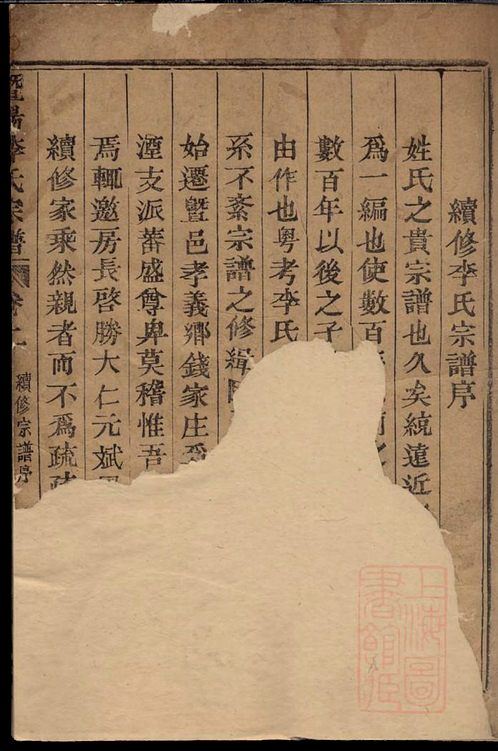 續修李氏宗譜序
姓氏之貴宗譜也久矣統遠近
爲一編也使數百
數百年以後之子
由作也粵考李氏
系不紊宗譜之修緝
始遷暨邑孝義鄉錢家庄
湮支派蕃盛尊卑莫稽惟吾
焉輒邀房長啓勝大仁元斌
續修家乘然親者而不爲疏疏
暨陽李氏宗譜
續修宗譜序
上海圖
書館臧